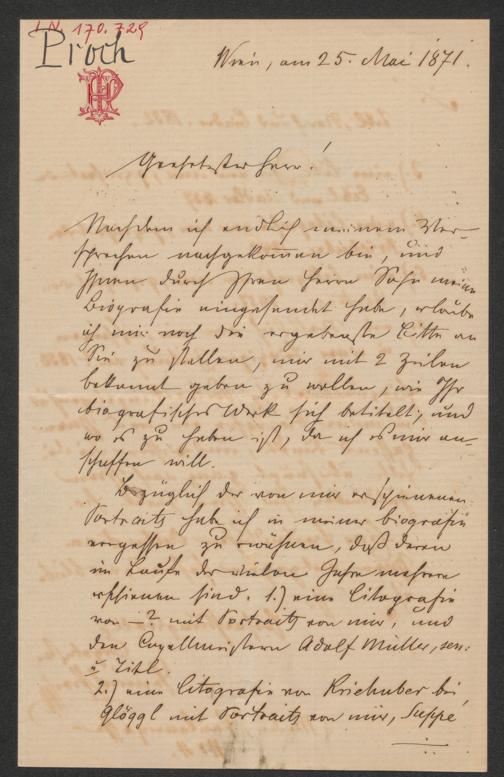 I.N. 170.729
Proch
HP
Wien, am 25. Mai 1871.
Geehrtester Herr!
Nachdem ich endlich meinem Ver-
sprechen nachgekommen bin, und
Ihnen durch Ihren Herrn Sohn meine
Biografie eingesendet habe, erlaube
ich mir noch die ergebenste Bitte an
Sie zu stellen, mir mit 2 Zeilen
bekannt geben zu wollen, wie Ihr
biografisches Werk sich betitelt, und
wo es zu haben ist, da ich es mir an-
schaffen will.
Bezüglich der von mir erschienenen
Portraits habe ich in meiner biografie
vergessen zu erwähnen, daß deren
im Laufe der vielen Jahre mehrere
erschienen sind. 1.) eine Litografie
von –? mit Portraits von mir, und
den Capellmeistern Adolf Müller, sen:
u Titl.
2.) eine Litografie von Kriehuber bei
Glöggl mit Portraits von mir, Suppé